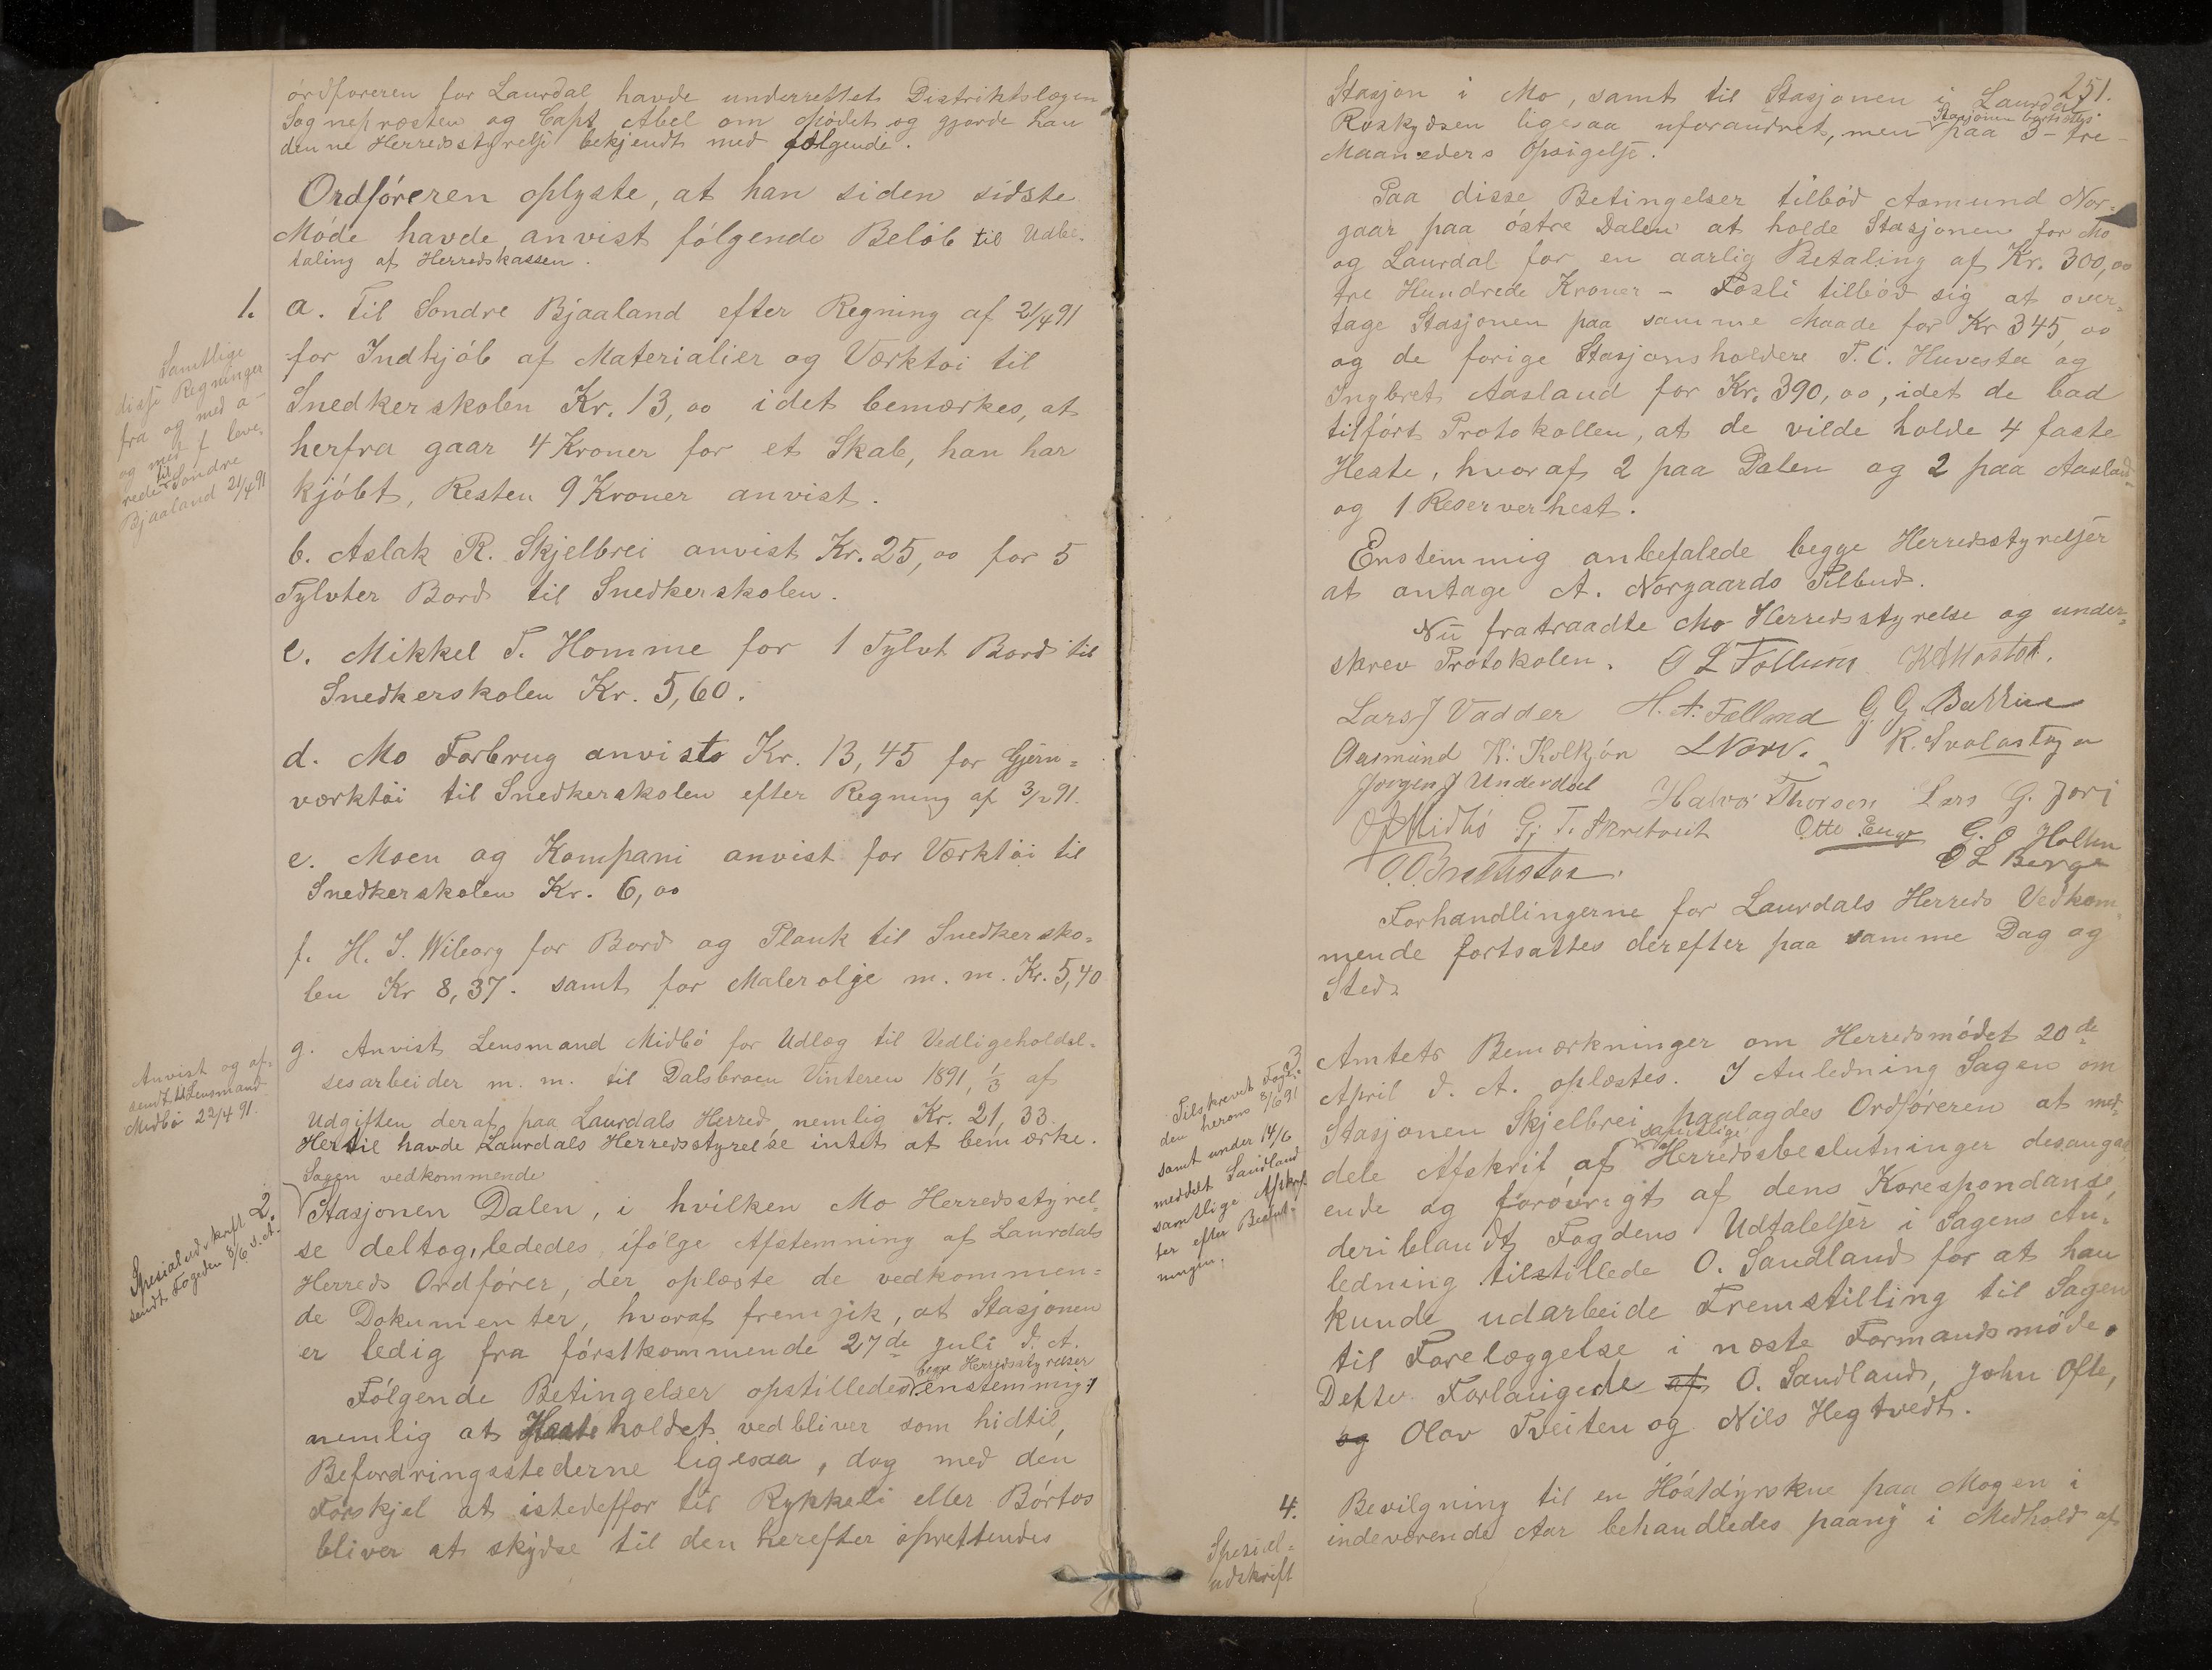 ordføreren for Laurdal havde underrettet Distriktslægen
Sognepræsten og Capt. Abel om Mødet og gjorde han
denne Herredsstyrelse bekjendt med følgende.
Ordføreren oplyste, at han siden sidste
Møde havde anvist følgende Beløb til Udbe-
taling af Herredskassen.
1.
a. Til Sondre Bjaaland efter Regning af 21/4 91
for Indkjøb af Materialier og Værktøi til
Snedkerskolen Kr. 13,00 idet bemærkes, at
herfra gaar 4 Kroner for et Skab, han har
kjøbt, Resten 9 Kroner anvist.
Samtlige
disse Regninger
fra og med a-
og med f leve-
redes til Sondre
Bjaaland 21/4 91
b. Aslak R. Skjelbrei anvist Kr. 25,00 for 5
Tylvter Bord til Snedkerskolen.
c. Mikkel T. Homme for 1 Tylvt Bord til
Snedkerskolen Kr. 5,60.
d. Mo Forbrug anvist Kr. 13,45 for Gjern=
værktøi til Snedkerskolen efter Regning af 3/2 91.
e. Moen og Kompani anvist for Værktøi til
Snedkerskolen Kr. 6,00
f. H. S. Wiborg for Bord og Plank til Snedkersko-
len Kr 8,37. samt for Malerolje m. m. Kr. 5,40
g. Anvist Lensmand Midbø for Udlæg til Vedligeholdel-
sesarbeider m. m. til Dalsbroen Vinteren 1891, 1/3 af
Udgiften deraf paa Laurdals Herred, nemlig Kr. 21,33.
Hertil havde Laurdals Herredsstyrelse intet at bemærke.
Anvist og af-
sendt til Lensmand
Midbø 22/4 91.
2
Sagen vedkommende
Stasjonen Dalen, i hvilken Mo Herredsstyrel-
se deltog, lededes ifølge Afstemning af Laurdals
Herreds Ordfører, der oplæste de vedkommen=
de Dokumenter, hvoraf fremgik, at Stasjonen
er ledig fra førstkommende 27de Juli d. A.
Spesialudskrift
sendt Fogeden 8/6 d. A.
begge Herredsstyrelser
Følgende Betingelser opstilledes enstemmig
nemlig at Hesteholdet vedbliver som hidtil,
Befordringsstederne ligesaa, dog med den
Forskjel at istedetfor til Rykkeli eller Børtos
bliver at skydse til den herefter oprettendes
251.
Stasjon i Mo, samt til Stasjonen i Laurdal
Stasjonen bortsættes
Roskydsen ligesaa uforandret, men paa 3 - tre -
Maaneders Opsigelse.
Paa disse Betingelser tilbød Asmund Nor-
gaar paa østre Dalen at holde Stasjonen for Mo
og Laurdal for en aarlig Betaling af Kr. 300,00
tre Hundrede Kroner - Fosli tilbød sig at over-
tage Stasjonen paa samme Maade for Kr 345,00
og de forige Stasjonsholdere T. C. Huvesta og
Ingbret Aasland for Kr. 390,00, idet de bad
tilført Protokollen, at de vilde holde 4 faste
Heste, hvoraf 2 paa Dalen og 2 paa Aasland
og 1 Reserverhest.
Enstemmig anbefalede begge Herredsstyrelser
at antage A. Norgaards Tilbud.
Nu fratraadte Mo Herredsstyrelse og under-
skrev Protokolen. O L Follum
Lars J Vadder H. A. G. G. Bakkine
Aasmund K. Kolkjøn LNorv. R. Svalastoga
Jørgen J Underdal Halvor Thorsen Lars G. Jori
OJMidbø G. T. Otte Enge G. O Holten
O L Berge
Forhandlingerne for Laurdals Herreds Vedkom-
mende fortsattes derefter paa samme Dag og
Sted.
3
Amtets Bemærkninger om Herredsmødet 20de
April d. A. oplæstes. I Anledning Sagen om
Stasjonen Skjelbrei paalagdes Ordføreren at med-
samtlige
dele Afskrift af Herredsbeslutninger desangaa
ende og forøvrigt af dens Korespondanse,
deriblandt Fogdens Udtalelser i Sagens An-
ledning tilstillede O. Sandland for at han
kunde udarbeide Fremstilling til Sagen
til Forelæggelse i næste Formandsmøde.
Dette Forlangede af O. Sandland, John Ofte,
og Olav Tveiten og Nils Hegtvedt.
Tilskrevet Foge-
den herom 8/6 91
samt under 14/6
meddelt Sandland
samtlige Afskrif
ter efter Beslut-
ningen.
4.
Bevilgning til en Høstdyrskue paa Mogen i
indeværende Aar behandledes paany i Medhold af
Spesiel-
udskrift